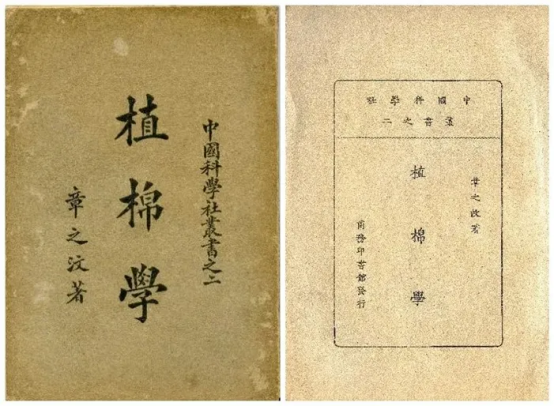 中國科學社叢書之二
植棉學
章之汶著
中國科學社
叢書之二
章之汶著
植棉學
商務印書館發行